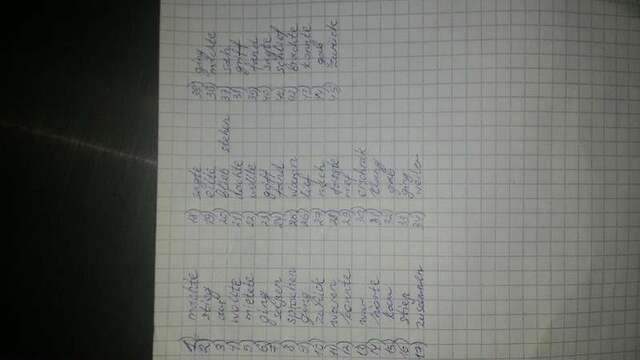 1) machte
2) stieg
3) aus
4) wollte
5) mietete
6) ging
7)
8) sprachen
9) ging
10) zurück
11) waren
12) konnte
13) war
14) hörte
15) kam
16) stieß
17) zusammen
18) sagte
19) eilte
20) blieb stehen
21) dachte
22) wollte
23) griff
24) fand
25) waren
26) lief
27) nach
28) fragte
29) rief
30) erschrak
31) klang
32) gab
33) ging
34) weiter
35) ging
36) möchte
37) sah
38) griff
39) fand
40) sagte
41) schlief
42) brachte
43) konnte
44) gab
45) zurück